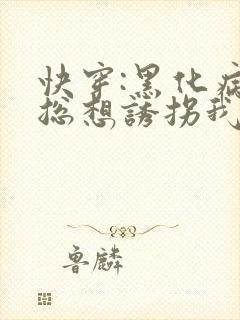 快穿:黑化病
总想誘拐我
鲁麟